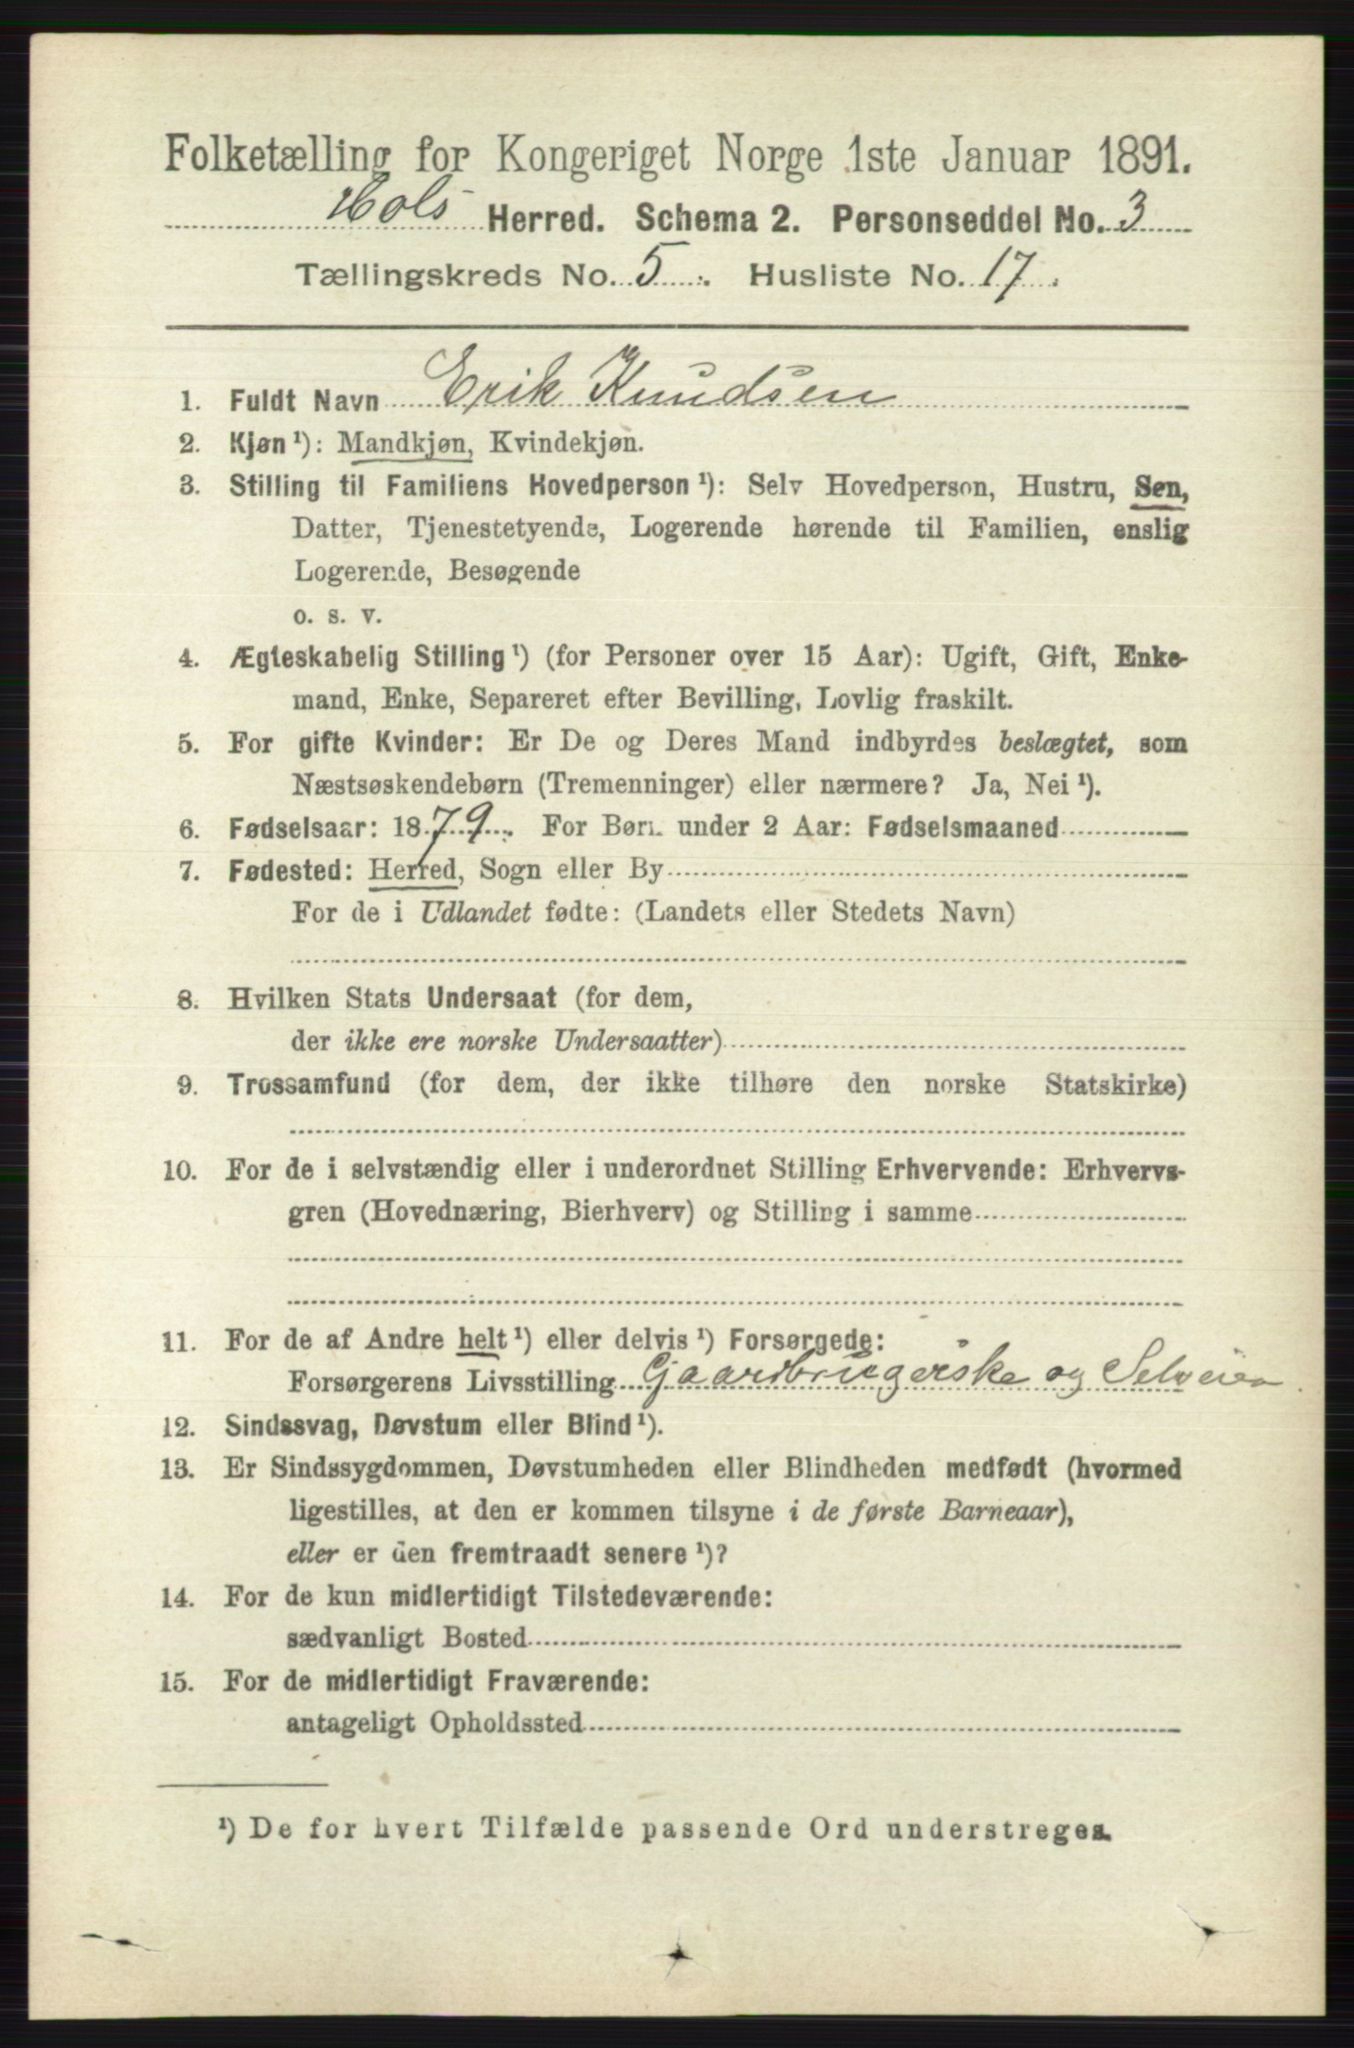 Folketælling for Kongeriget Norge 1ste Januar 1891.
Hols Herred. Schema 2. Personseddel No. 3
Tællingskreds No. 5. Husliste No. 17.
1. Fuldt Navn Erik Knudsen
2. Kjøn ¹): Mandkjøn, Kvindekjøn.
3. Stilling til Familiens Hovedperson ¹): Selv Hovedperson, Hustru, Søn,
Datter, Tjenestetyende, Logerende hørende til Familien, enslig
Logerende, Besøgende
o. s. v.
4. Ægteskabelig Stilling ¹) (for Personer over 15 Aar): Ugift, Gift, Enke-
mand, Enke, Separeret efter Bevilling, Lovlig fraskilt.
5. For gifte Kvinder: Er De og Deres Mand indbyrdes beslægtet, som
Næstsøskendebørn (Tremenninger) eller nærmere? Ja, Nei ¹).
6. Fødselsaar: 1879. For Børn under 2 Aar: Fødselsmaaned
7. Fødested: Herred, Sogn eller By
For de i Udlandet fødte: (Landets eller Stedets Navn)
8. Hvilken Stats Undersaat (for dem,
der ikke ere norske Undersaatter)
9. Trossamfund (for dem, der ikke tilhøre den norske Statskirke)
10. For de i selvstændig eller i underordnet Stilling Erhvervende: Erhvervs-
gren (Hovednæring, Bierhverv) og Stilling i samme
11. For de af Andre helt ¹) eller delvis ¹) Forsørgede:
Forsørgerens Livsstilling Gjaardbrugerske og Selveier
12. Sindssvag, Døvstum eller Blind ¹).
13. Er Sindssygdommen, Døvstumheden eller Blindheden medfødt (hvormed
ligestilles, at den er kommen tilsyne i de første Barneaar),
eller er den fremtraadt senere ¹)?
14. For de kun midlertidigt Tilstedeværende:
sædvanligt Bosted
15. For de midlertidigt Fraværende:
antageligt Opholdssted
¹) De for hvert Tilfælde passende Ord understreges.